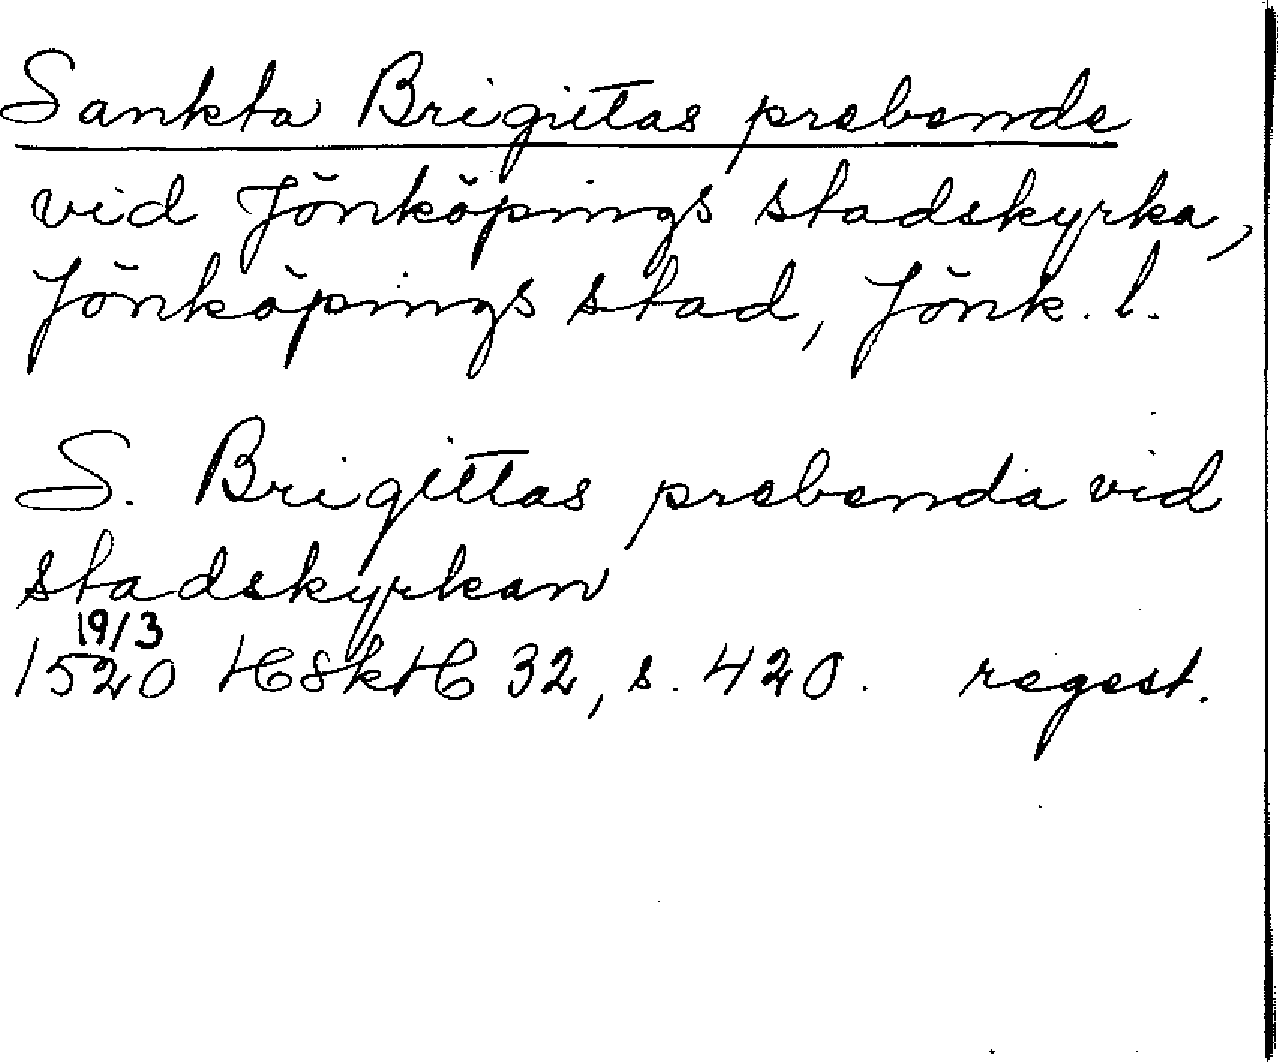 Sankta Brigittas prebende
vid Jönköpings stadskyrka,
Jönköpings stad, Jönk. l.
S. Brigittas prebenda vid
stadskyrkan
19/3
1520 HSkH 32, s. 420. regest.